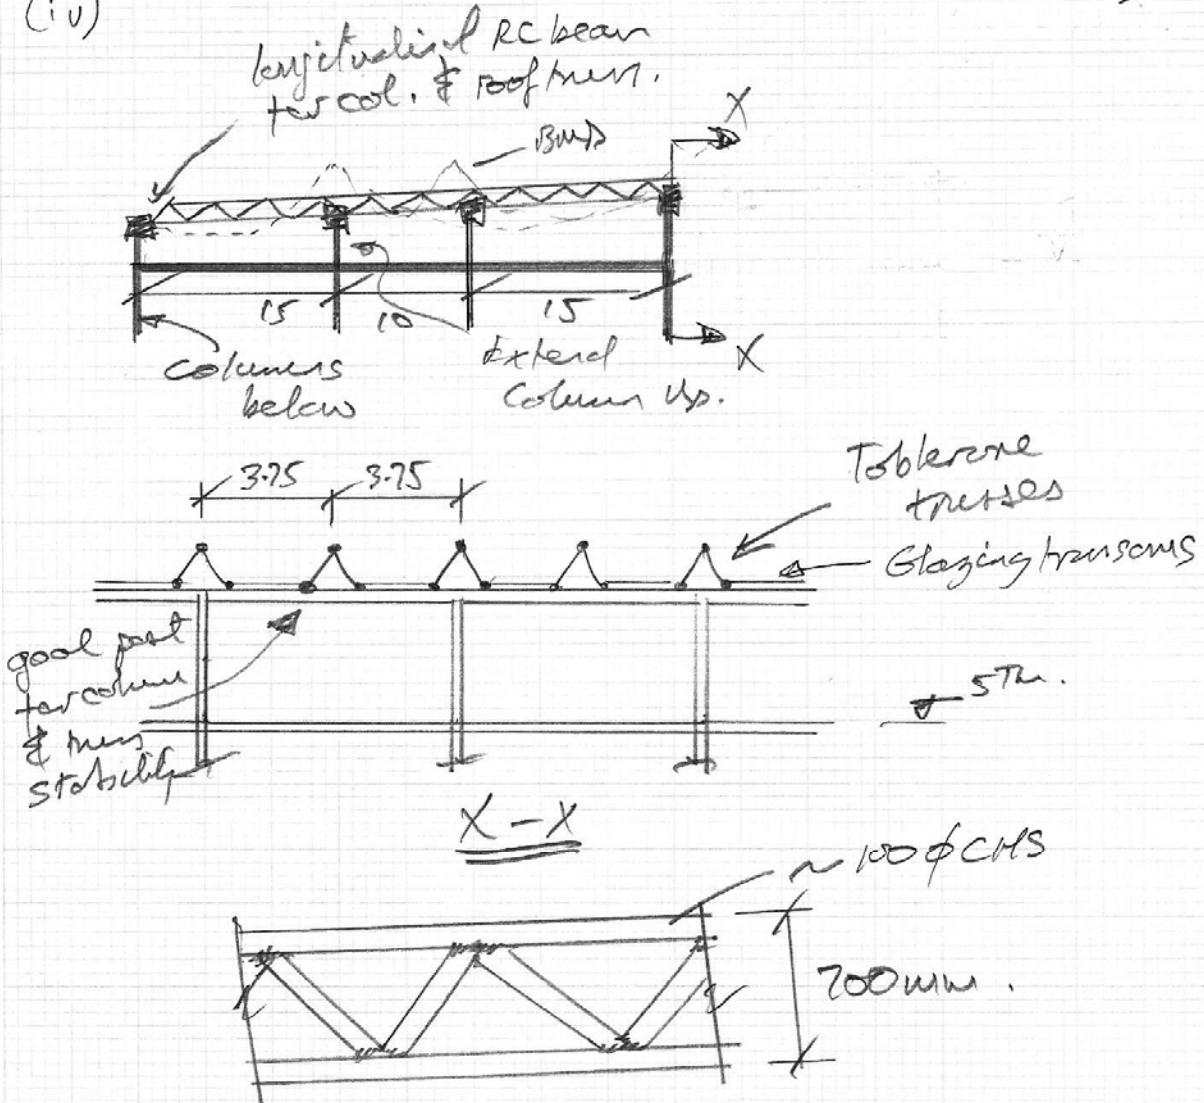 (iv)
longitudinal RC beam
for col. & roof truss.
X
BMD
15
10
15
X
Columns
below
Extend
Column Up.
3.75
3.75
Toblerone
trusses
Glazing transoms
goal post
for column
& truss
stability
5Th.
X-X
~ 100 φ CHS
700mm.